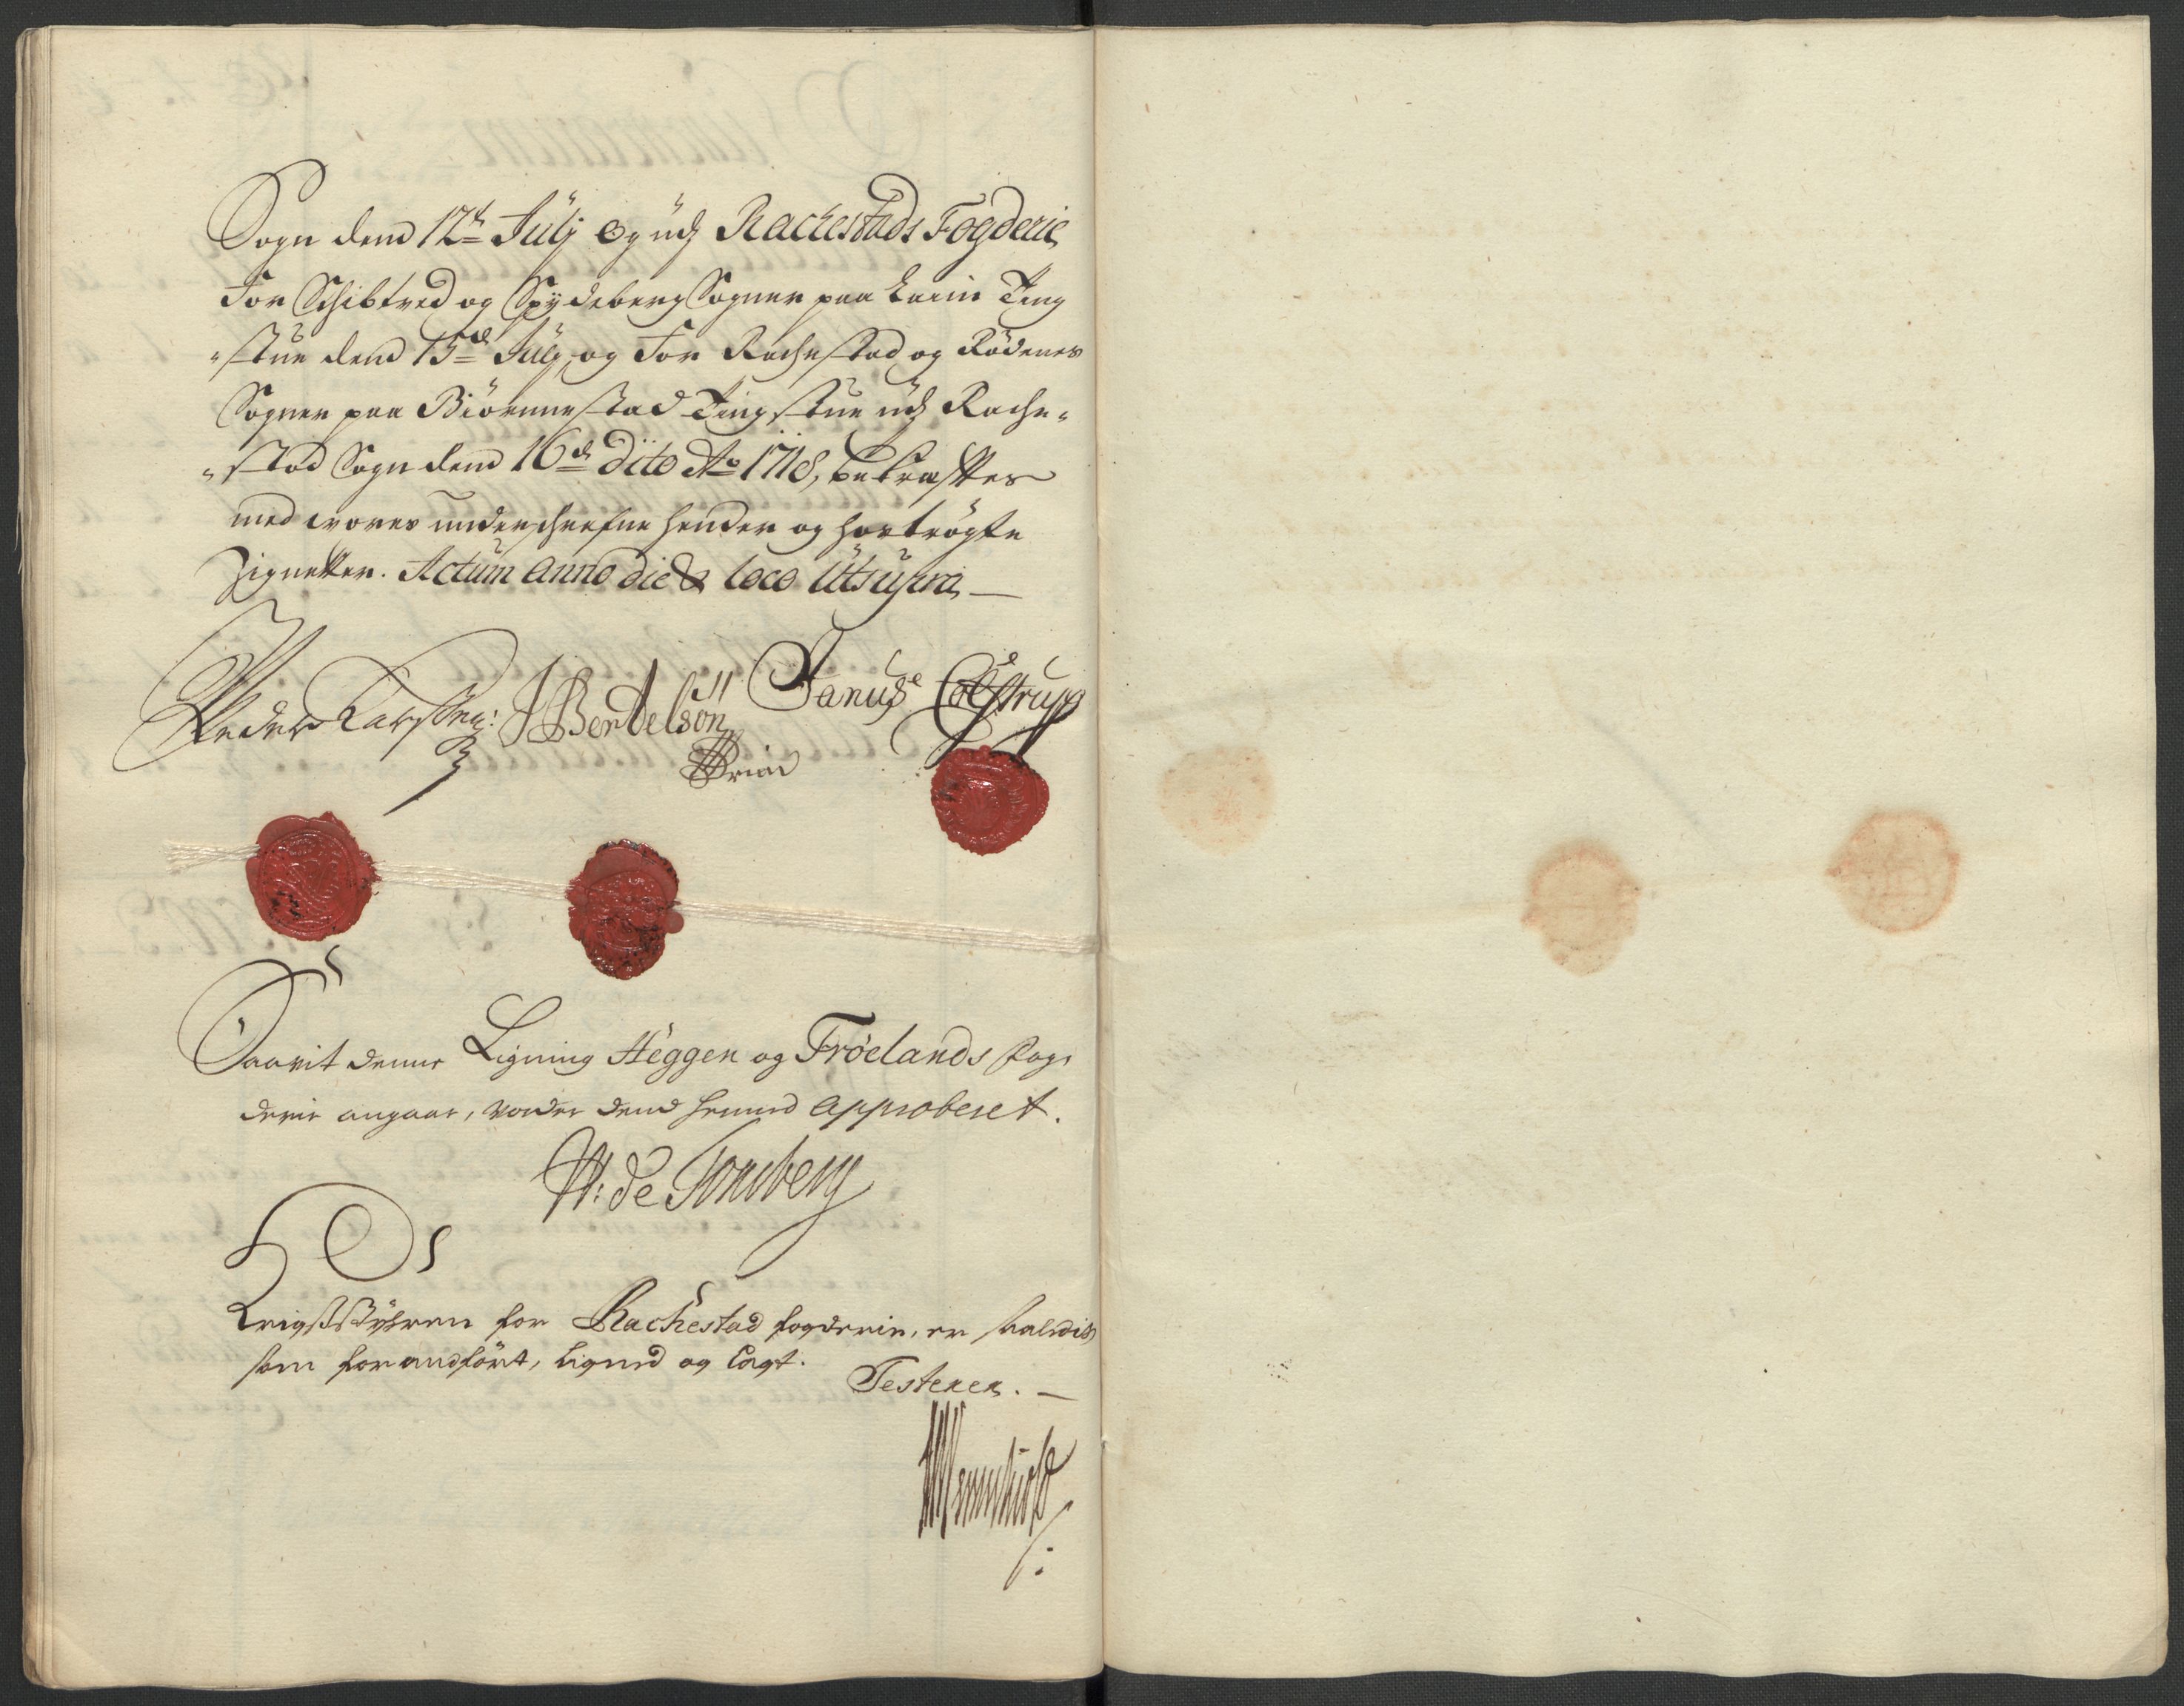 Sogn dend 12te Julj og udj Rachestads Fogderie
For Schibtved og Spydeberg Sogner paa Ting
"stue dend 15de Julj, og For Rachestad og Rødenes
Sogner paa Biørnnestad Tingstue udj Rache-
"stad Sogn dend 16de Dito Ao 1718, bekræfftes
med vores underschrefne hender og hostrøgte
Zignetter. Actum Anno die & loco Utsupra —
Peder Larssen: JBertelsön Janus Colstrup
Saavit denne Ligning Heggen og Frøelands fog-
derie angaar, vorder dend hermed approberet.
W: de Tonsberg
Krigsstyhren for Rachestad fogderie, er saaledis
som foranført, ligned og lagt.
Testerer. —